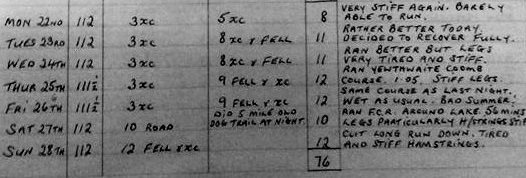 VERY STIFF AGAIN. BARELY
MON 22ND 112 3 XC 5 XC 8 ABLE TO RUN.
RATHER BETTER TODAY
TUES 23RD 112 3 XC 8 XC Y FELL 11 DECIDED TO RECOVER FULLY.
RAN BETTER BUT LEGS
WED 24TH 112 3 XC 8 XC Y FELL 11 VERY TIRED AND STIFF.
RAN YEWTHWAITE COOMB
THUR 25TH 111½ 3 XC 9 FELL Y XC 12 COURSE. 1.05. STIFF LEGS.
SAME COURSE AS LAST NIGHT.
FRI 26TH 111½ 3 XC 9 FELL Y XC 12 WET AS USUAL. BAD SUMMER!
DID 5 MILE OLD RAN F.C.R. AROUND LAKE. 56 MINS
SAT 27TH 112 10 ROAD DOG TRAIL AT NIGHT. 10 LEGS PARTICULARLY H/STRINGS STIFF
CUT LONG RUN DOWN. TIRED
SUN 28TH 112 12 FELL & XC 12 AND STIFF HAMSTRINGS.
76